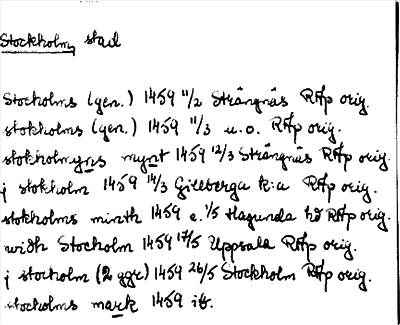 Stockholm, stad
Stocholms (gen.) 1459 11/2 Strängnäs RAp orig.
stokholms (gen.) 1459 11/3 u.o. RAp orig.
stokholmyns mynt 1459 12/3 Strängnäs RAp orig.
j stokholm 1459 14/3 Gilleberga k:a RAp orig.
stokholms minth 1459 e. 1/5 Hagunda hd RAp orig.
widh Stocholm 1459 17/5 Uppsala RAp orig.
j stocholm (2 ggr) 1459 26/5 Stockholm RAp orig.
stocholms mark 1459 ib.